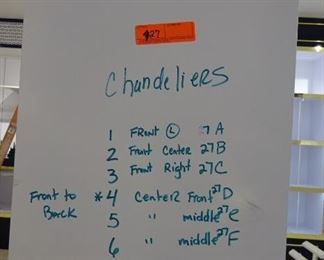 27
Chandeliers
1 Front (L) 27A
2 Front Center 27B
3 Front Right 27C
Front to Back
*4 Center2 Front 27D
5 " middle 27E
6 " middle 27F